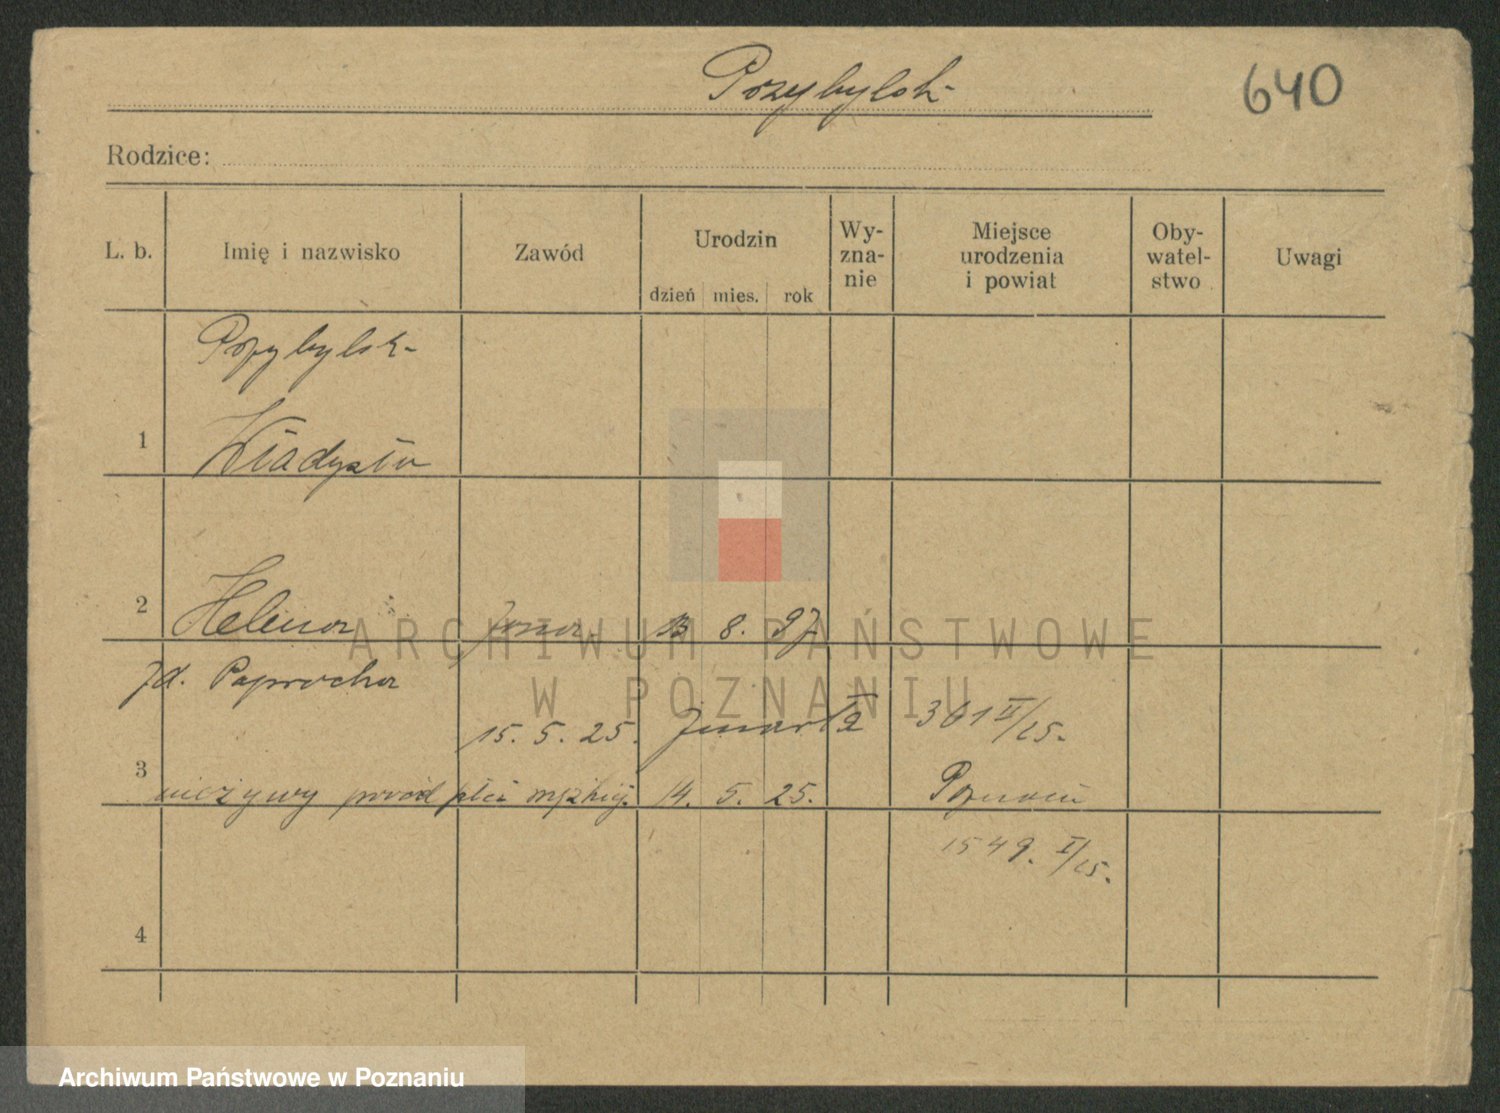 Przybylski
640
Rodzice:
L. b.
Imię i nazwisko
Zawód
Urodzin
dzień mies. rok
Wy-
zna-
nie
Miejsce
urodzenia
i powiat
Oby-
watel-
stwo
Uwagi
Przybylski
1 Władysław
2 Helena żona 13 8. 97
zd. Paprocka
15. 5. 25. zmarła 361 II/25.
3 nieżywy poród płci męskiej. 14. 5. 25. Poznań
1549. I/25.
4
ARCHIWUM PAŃSTWOWE
W POZNANIU
Archiwum Państwowe w Poznaniu